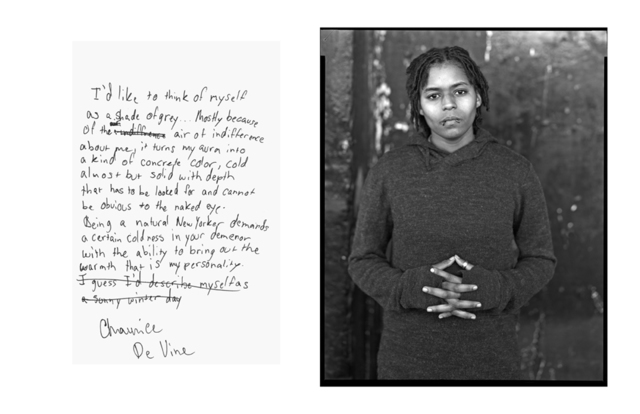 I'd like to think of myself
as a shade of grey... Mostly because
of the indifference air of indifference
about me, it turns my aura into
a kind of concrete color, cold
almost but solid with depth
that has to be looked for and cannot
be obvious to the naked eye.
Being a natural New Yorker demands
a certain coldness in your demenor
with the ability to bring out the
warmth that is my personality.
I guess I'd describe myself as
a sunny winter day
De Vine